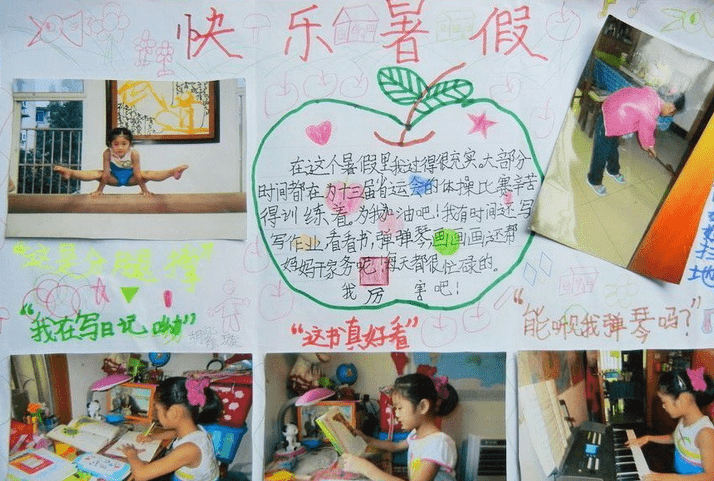 快乐暑假
在这个暑假里我过得很充实。大部分
时间都在为十三届省运会的体操比赛辛苦
得训练着。为我加油吧！我有时间还写
写作业,看看书,弹弹琴,画画画,还帮
妈妈干家务呢！每天都很忙碌的。
我厉害吧！
"这是分腿撑"
"我在写日记呦"
"这书真好看"
"能听见我弹琴吗？"
扫
地